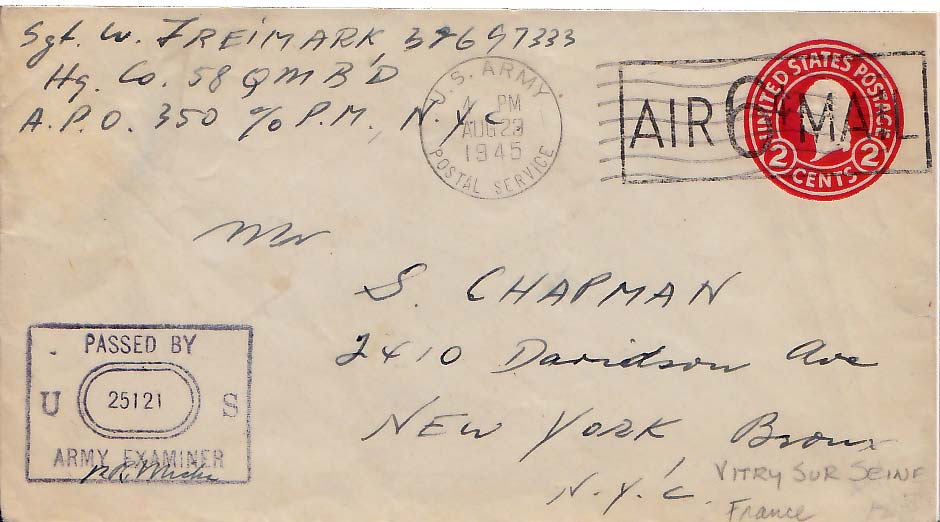 Sgt. W. FREIMARK 32697333
Hq. Co. 58 QMB'D
A.P.O. 350 c/o P.M., N.Y.C.
U.S. ARMY
PM
AUG 23
1945
POSTAL SERVICE
AIR 6¢ MAIL
UNITED STATES POSTAGE
2 CENTS 2
Mr
S. CHAPMAN
2410 Davidson Ave
NEW YORK, Bronx
N.Y.C.
VITRY SUR SEINE
France
PASSED BY
U 25121 S
ARMY EXAMINER